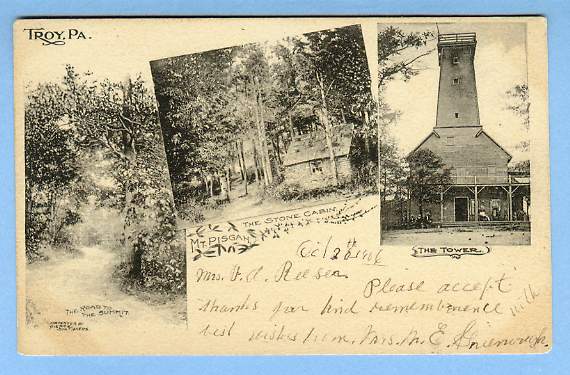 TROY, PA.
THE STONE CABIN,
MT. PISGAH
THE TOWER.
THE ROAD TO
THE SUMMIT.
Oct 26 1906
Mrs.
Please accept
thanks for kind rememberence with
best wishes from, Mrs. M. E.